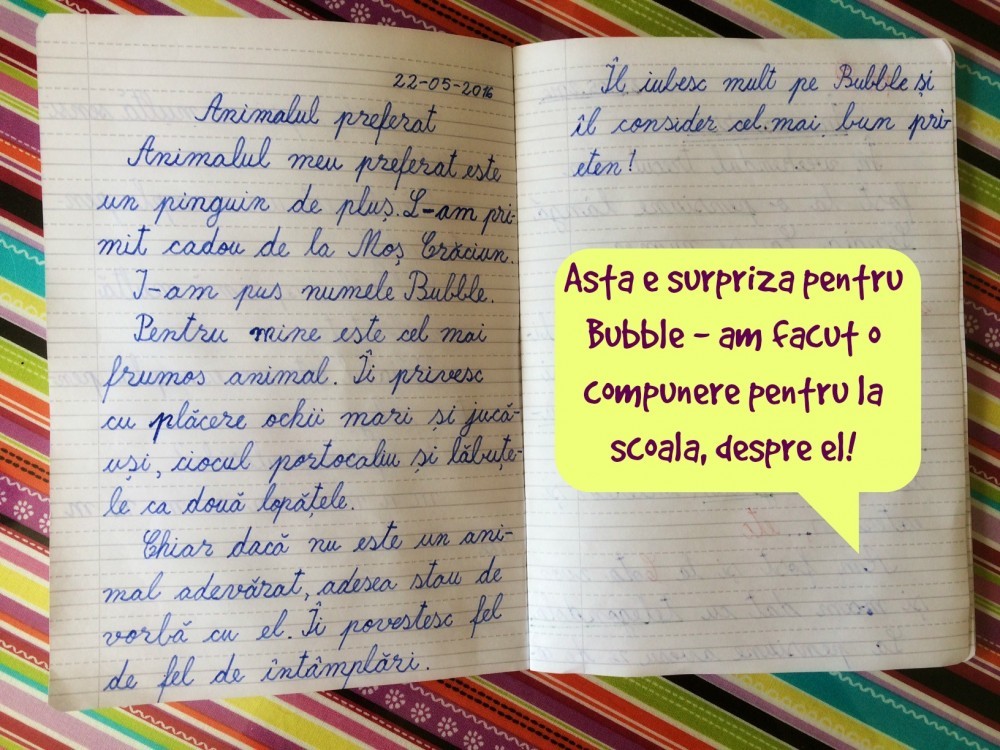 22-05-2016
Animalul preferat
Animalul meu preferat este
un pinguin de pluș. L-am pri-
mit cadou de la Moș Crăciun.
I-am pus numele Bubble.
Pentru mine este cel mai
frumos animal. Îi privesc
cu plăcere ochii mari si jucă-
uși, ciocul portocaliu și lăbuțe-
le ca două lopățele.
Chiar dacă nu este un ani-
mal adevărat, adesea stau de
vorbă cu el. Îi povestesc fel
de fel de întâmplări.
Îl iubesc mult pe Bubble și
îl consider cel mai bun pri-
eten!
Asta e surpriza pentru
Bubble - am facut o
compunere pentru la
scoala, despre el!